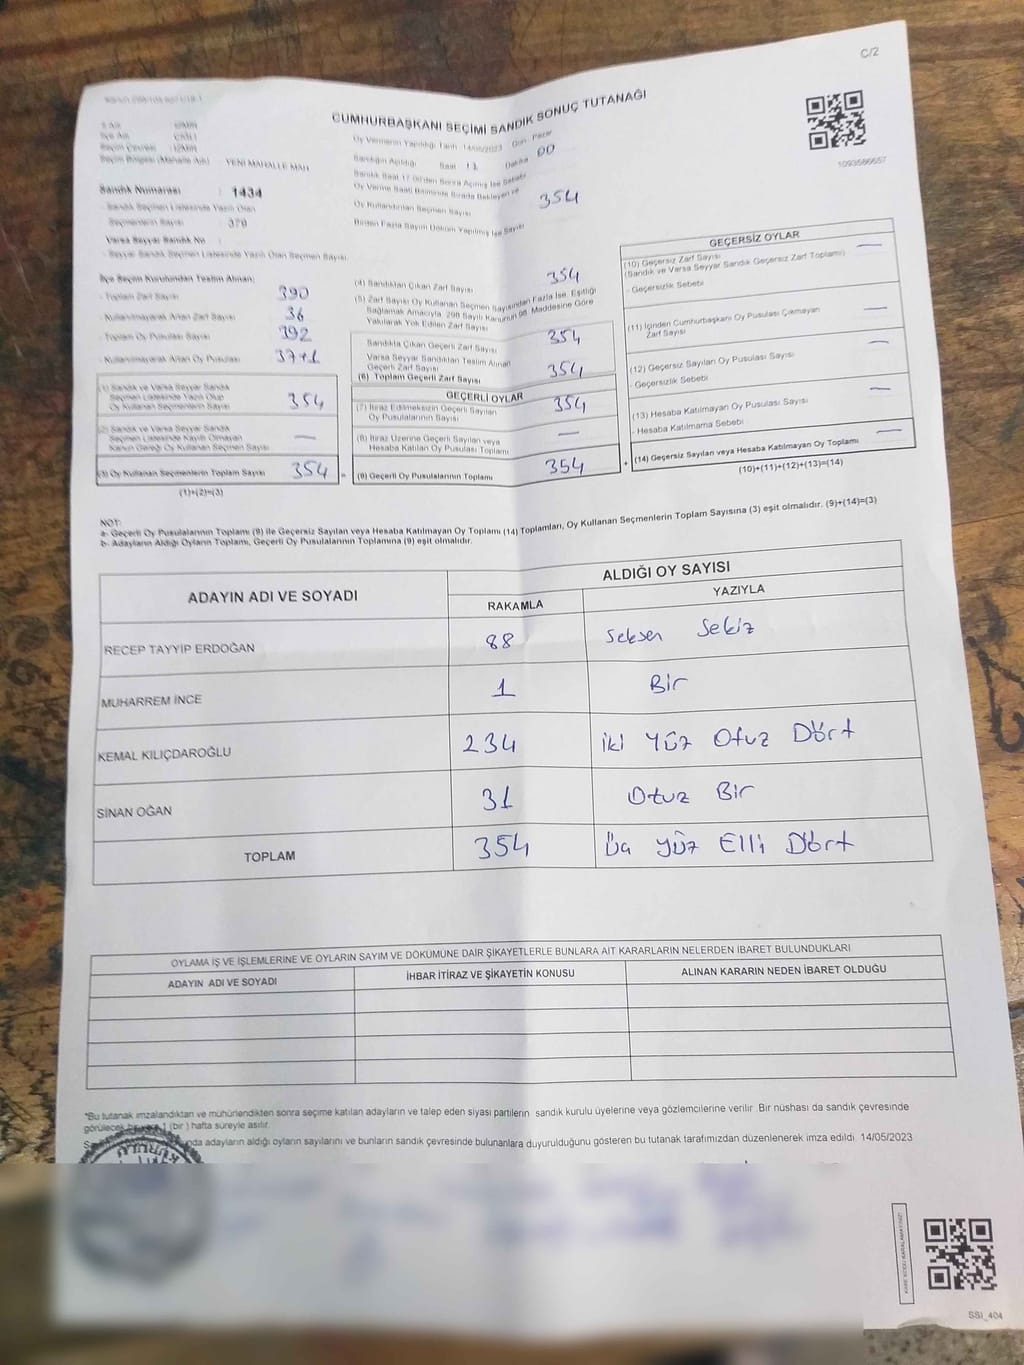 C/2
CUMHURBAŞKANI SEÇİMİ SANDIK SONUÇ TUTANAĞI
1093586657
İli Adı İZMİR
İlçe Adı ÇİĞLİ
Seçim Çevresi İZMİR
Seçim Bölgesi (Mahalle Adı) YENİ MAHALLE MAH
Sandık Numarası : 1434
- Sandık Seçmen Listesinde Yazılı Olan
Seçmenlerin Sayısı : 370
Varsa Seyyar Sandık No
- Seyyar Sandık Seçmen Listesinde Yazılı Olan Seçmen Sayısı:
Oy Vermenin Yapıldığı Tarih :14/05/2023 Gün: Pazar
Sandığın Açıldığı Saat Dakika 00
Sandık Saat 17.00'den Sonra Açılmış İse Sebebi
Oy Verme Saati Bitiminde Sırada Bekleyen ve
Oy Kullandırılan Seçmen Sayısı 354
Birden Fazla Sayım Döküm Yapılmış İse Sayısı
İlçe Seçim Kurulundan Teslim Alınan;
- Toplam Zarf Sayısı 390
- Kullanılmayarak Artan Zarf Sayısı 36
- Toplam Oy Pusulası Sayısı 392
- Kullanılmayarak Artan Oy Pusulası 37+1
(1) Sandık ve Varsa Seyyar Sandık
Seçmen Listesinde Yazılı Olup
Oy Kullanan Seçmenlerin Sayısı 354
(2) Sandık ve Varsa Seyyar Sandık
Seçmen Listesinde Kayıtlı Olmayan
Kanun Gereği Oy Kullanan Seçmen Sayısı —
(3) Oy Kullanan Seçmenlerin Toplam Sayısı 354 =
(1)+(2)=(3)
(4) Sandıktan Çıkan Zarf Sayısı 354
(5) Zarf Sayısı Oy Kullanan Seçmen Sayısından Fazla İse, Eşitliği
Sağlamak Amacıyla, 298 Sayılı Kanunun 98. Maddesine Göre
Yakılarak Yok Edilen Zarf Sayısı
Sandıkta Çıkan Geçerli Zarf Sayısı 354
Varsa Seyyar Sandıktan Teslim Alınan
Geçerli Zarf Sayısı
(6) Toplam Geçerli Zarf Sayısı 354
GEÇERLİ OYLAR
(7) İtiraz Edilmeksizin Geçerli Sayılan
Oy Pusulalarının Sayısı 354
(8) İtiraz Üzerine Geçerli Sayılan veya
Hesaba Katılan Oy Pusulaları Toplamı —
(9) Geçerli Oy Pusulalarının Toplamı 354 +
GEÇERSİZ OYLAR
(10) Geçersiz Zarf Sayısı —
(Sandık ve Varsa Seyyar Sandık Geçersiz Zarf Toplamı)
- Geçersizlik Sebebi
(11) İçinden Cumhurbaşkanı Oy Pusulası Çıkmayan —
Zarf Sayısı
(12) Geçersiz Sayılan Oy Pusulası Sayısı —
- Geçersizlik Sebebi
(13) Hesaba Katılmayan Oy Pusulası Sayısı —
- Hesaba Katılmama Sebebi
(14) Geçersiz Sayılan veya Hesaba Katılmayan Oy Toplamı —
(10)+(11)+(12)+(13)=(14)
NOT:
a- Geçerli Oy Pusulalarının Toplamı (9) ile Geçersiz Sayılan veya Hesaba Katılmayan Oy Toplamı (14) Toplamları, Oy Kullanan Seçmenlerin Toplam Sayısına (3) eşit olmalıdır. (9)+(14)=(3)
b- Adayların Aldığı Oyların Toplamı, Geçerli Oy Pusulalarının Toplamına (9) eşit olmalıdır.
ADAYIN ADI VE SOYADI ALDIĞI OY SAYISI
RAKAMLA YAZIYLA
RECEP TAYYİP ERDOĞAN 88 Seksen Sekiz
MUHARREM İNCE 1 Bir
KEMAL KILIÇDAROĞLU 234 iki Yüz Otuz Dört
SİNAN OĞAN 31 Otuz Bir
TOPLAM 354 Üç yüz Elli Dört
OYLAMA İŞ VE İŞLEMLERİNE VE OYLARIN SAYIM VE DÖKÜMÜNE DAİR ŞİKAYETLERLE BUNLARA AİT KARARLARIN NELERDEN İBARET BULUNDUKLARI
ADAYIN ADI VE SOYADI İHBAR İTİRAZ VE ŞİKAYETİN KONUSU ALINAN KARARIN NEDEN İBARET OLDUĞU
*Bu tutanak imzalandıktan ve mühürlendikten sonra seçime katılan adayların ve talep eden siyasi partilerin sandık kurulu üyelerine veya gözlemcilerine verilir. Bir nüshası da sandık çevresinde
görülecek bir yere 1 (bir) hafta süreyle asılır.
adayların aldığı oyların sayılarını ve bunların sandık çevresinde bulunanlara duyurulduğunu gösteren bu tutanak tarafımızdan düzenlenerek imza edildi. 14/05/2023
KARE KODU KARALAMAYINIZ!
SSI_404